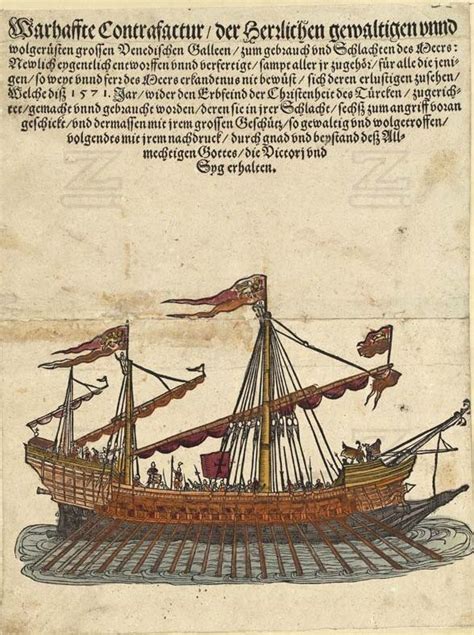 Warhaffte Contrafactur / der Herrlichen gewaltigen vnnd
wolgerüsten grossen Venedischen Galleen / zum gebrauch vnd Schlachten des Meers:
Newlich eygentlich entworffen vnnd verfertigt / sampt aller jr zugehör / für alle die jeni-
gen / so weyt vnnd ferr des Meers erkandtnus nit bewüst / sich deren erlustigen zusehen /
Welche diß 1571. Jar / wider den Erbfeind der Christenheit des Türcken / zugerich-
tet / gemacht vnnd gebraucht worden / deren sie in jrer Schlacht / sechß zum angriff voran
geschickt / vnd dermassen mit jrem grossen Geschütz / so gewaltig vnd wolgetroffen /
volgendes mit jrem nachdruck / durch gnad vnd beystand deß All-
mechtigen Gottes / die Victorj vnd
Syg erhalten.